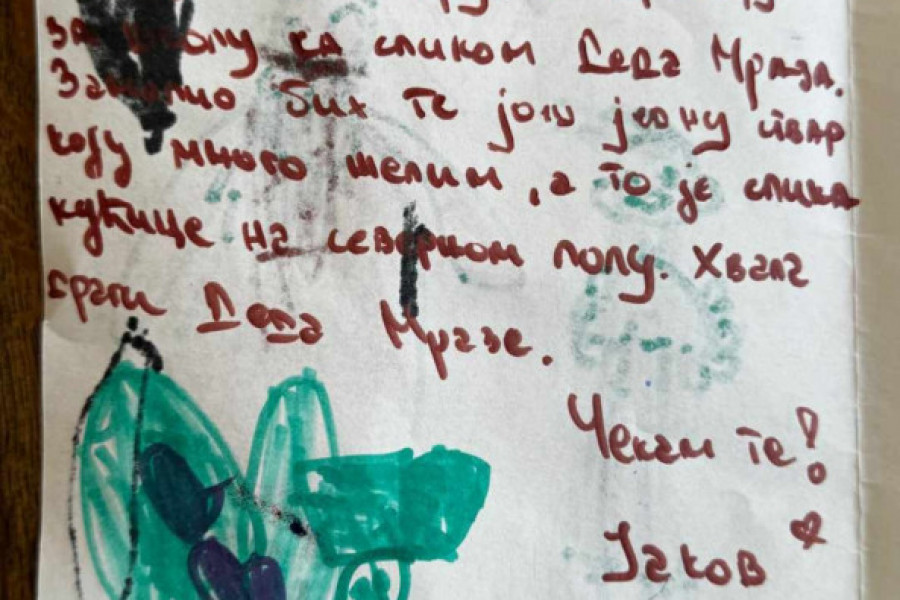 за школу са сликом Деда Мраза.
Замолио бих те јошу једну ствар
коју много желим, а то је слика
кућице на северном полу. Хвала
драги Деда Мразе.
Чекам те!
Јаков